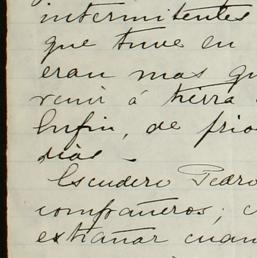 intermitentes
que tuve en
eran mas qu
venir á tierra
Enfin, de frio
dias.
Escudero Pedro
compañeros; c
extrañar cuan